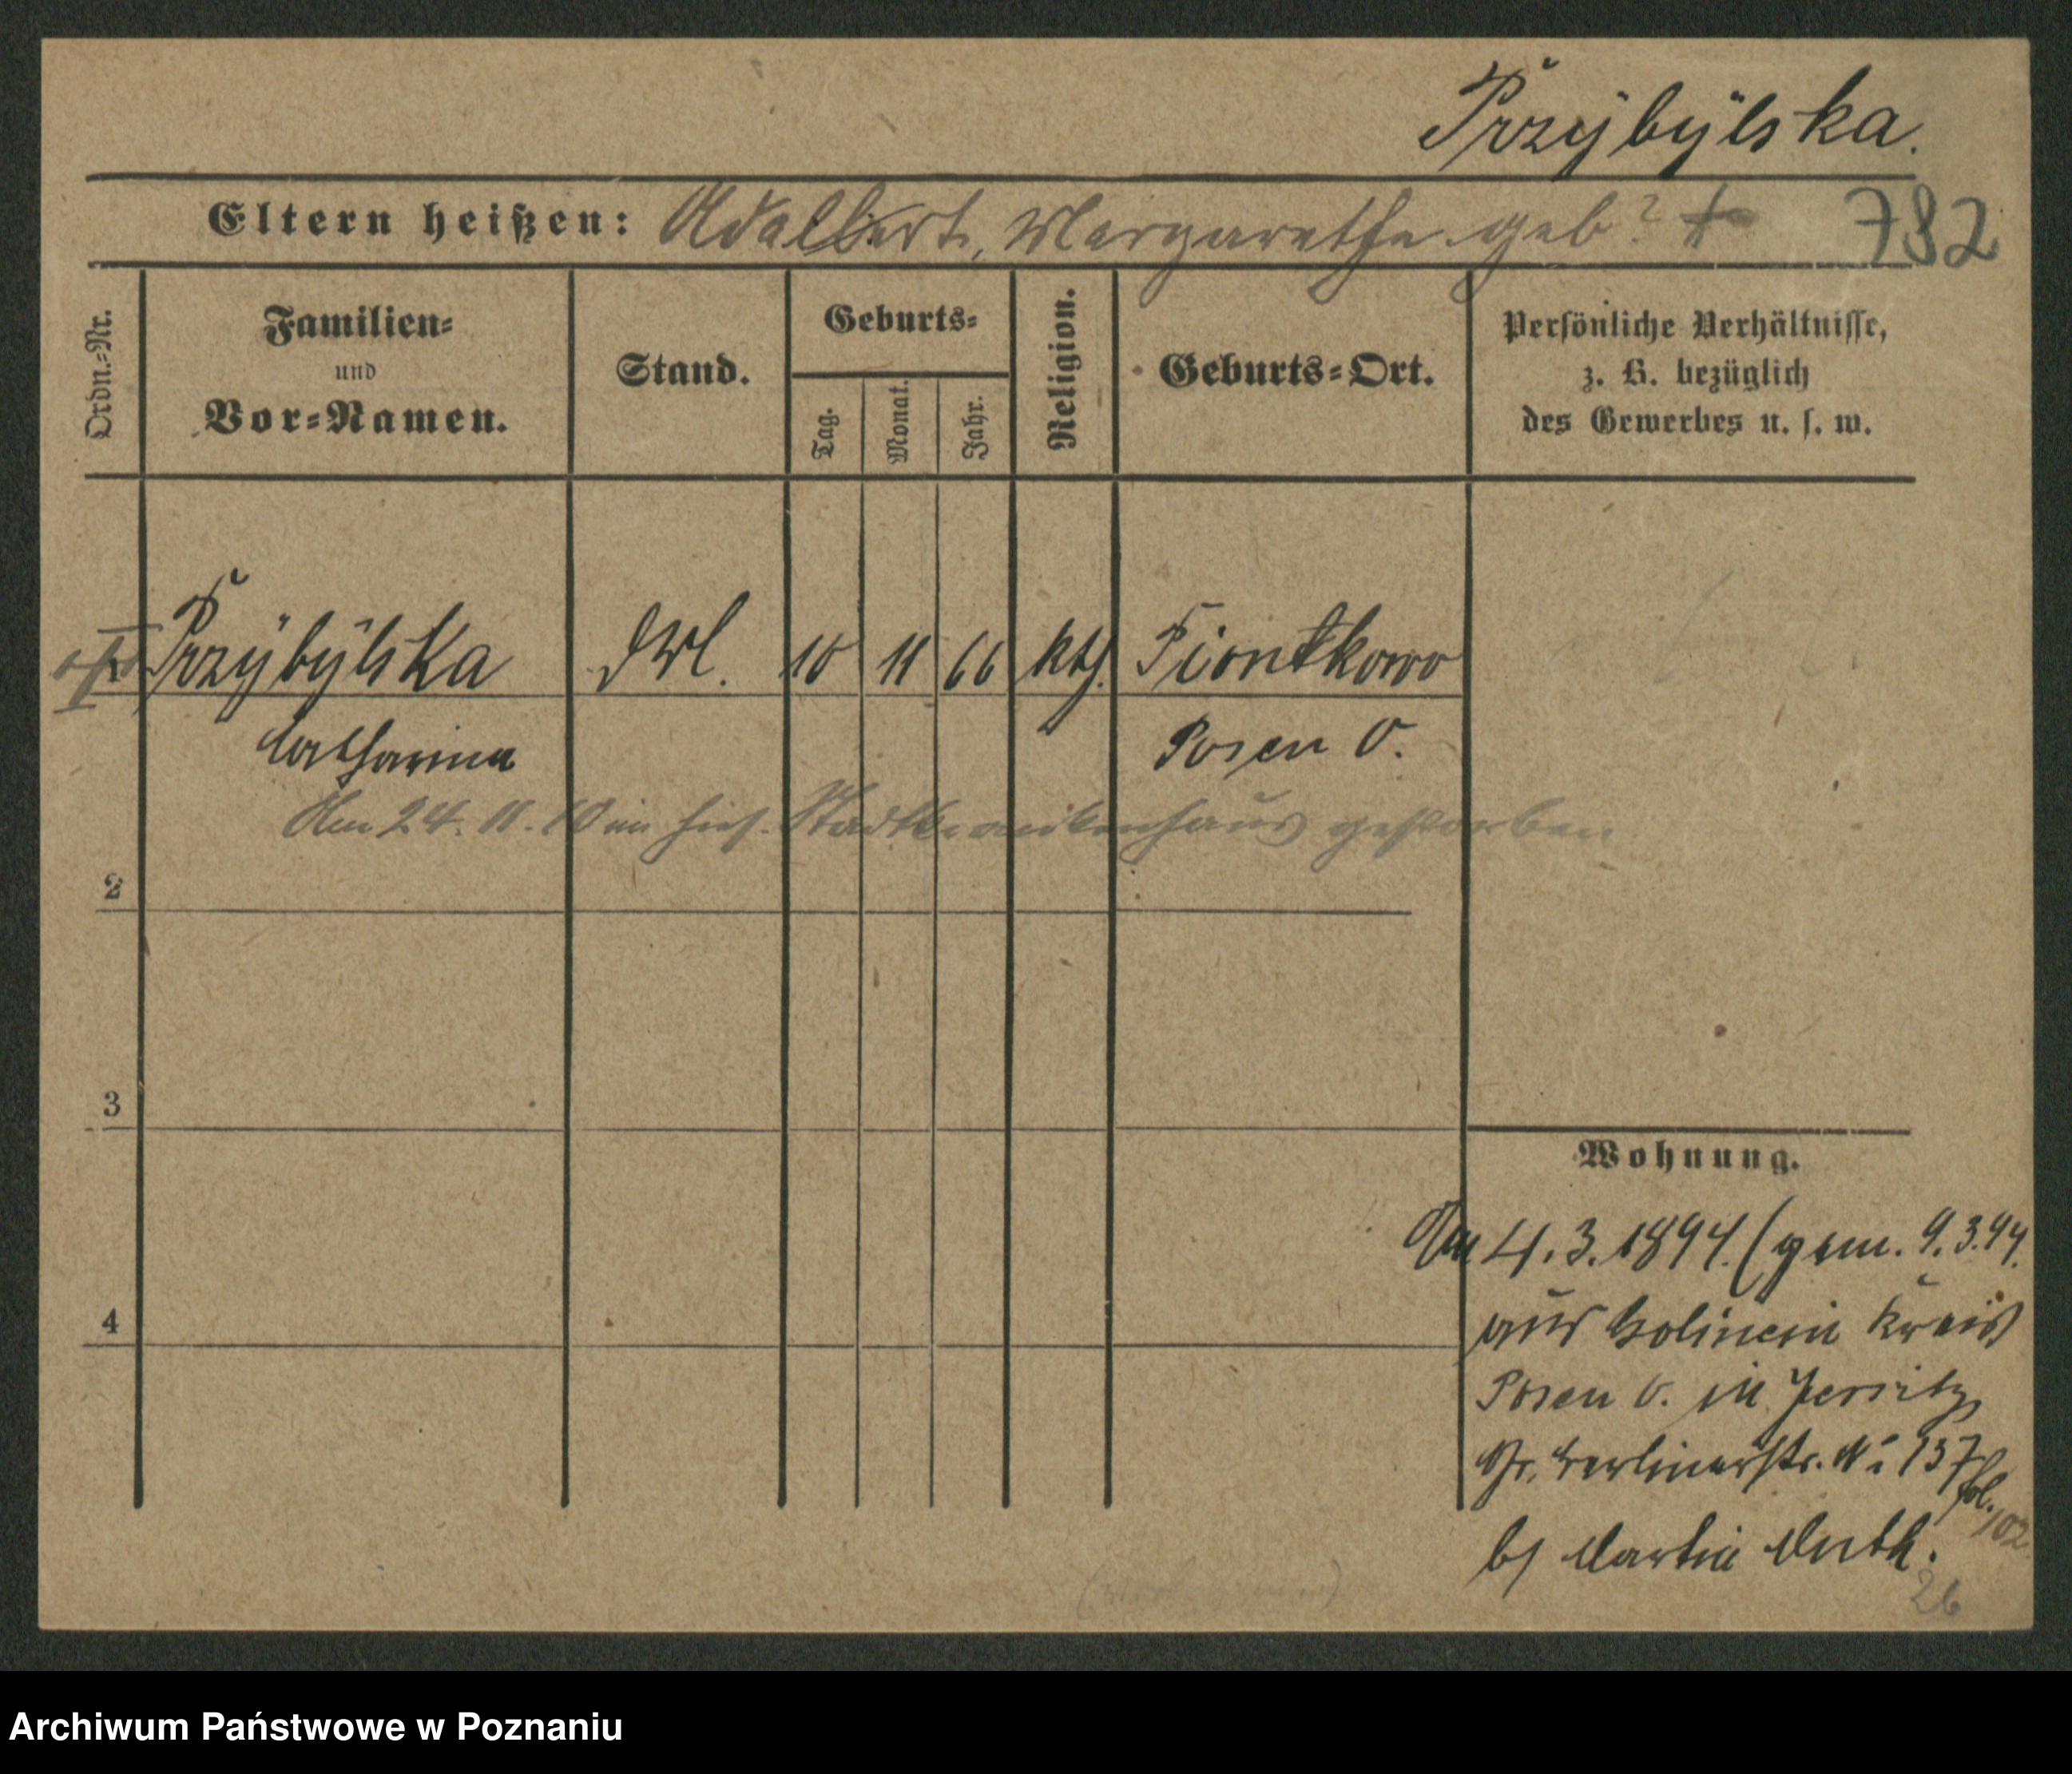 Przybylska.
Eltern heißen: Adalbert, Margarethe geb? 782
Ordn.=Nr.
Familien=
und
Vor=Namen.
Stand.
Geburts=
Tag.
Monat.
Jahr.
Religion.
Geburts=Ort.
Persönliche Verhältnisse,
z. B. bezüglich
des Gewerbes u. s. w.
Przybylska 10 11 66 kth. Piontkowo
Catharina Posen O.
Am 24. 11. 10 im hies. Stadtkrankenhaus gestorben
2
3
4
Wohnung.
Am 4.3.1894. (gem. 9.3.94.
aus Kreis
Posen O. in Jersitz
Gr. Berlinerstr. No 137
fol. 102
b/ Martin
26
Archiwum Państwowe w Poznaniu